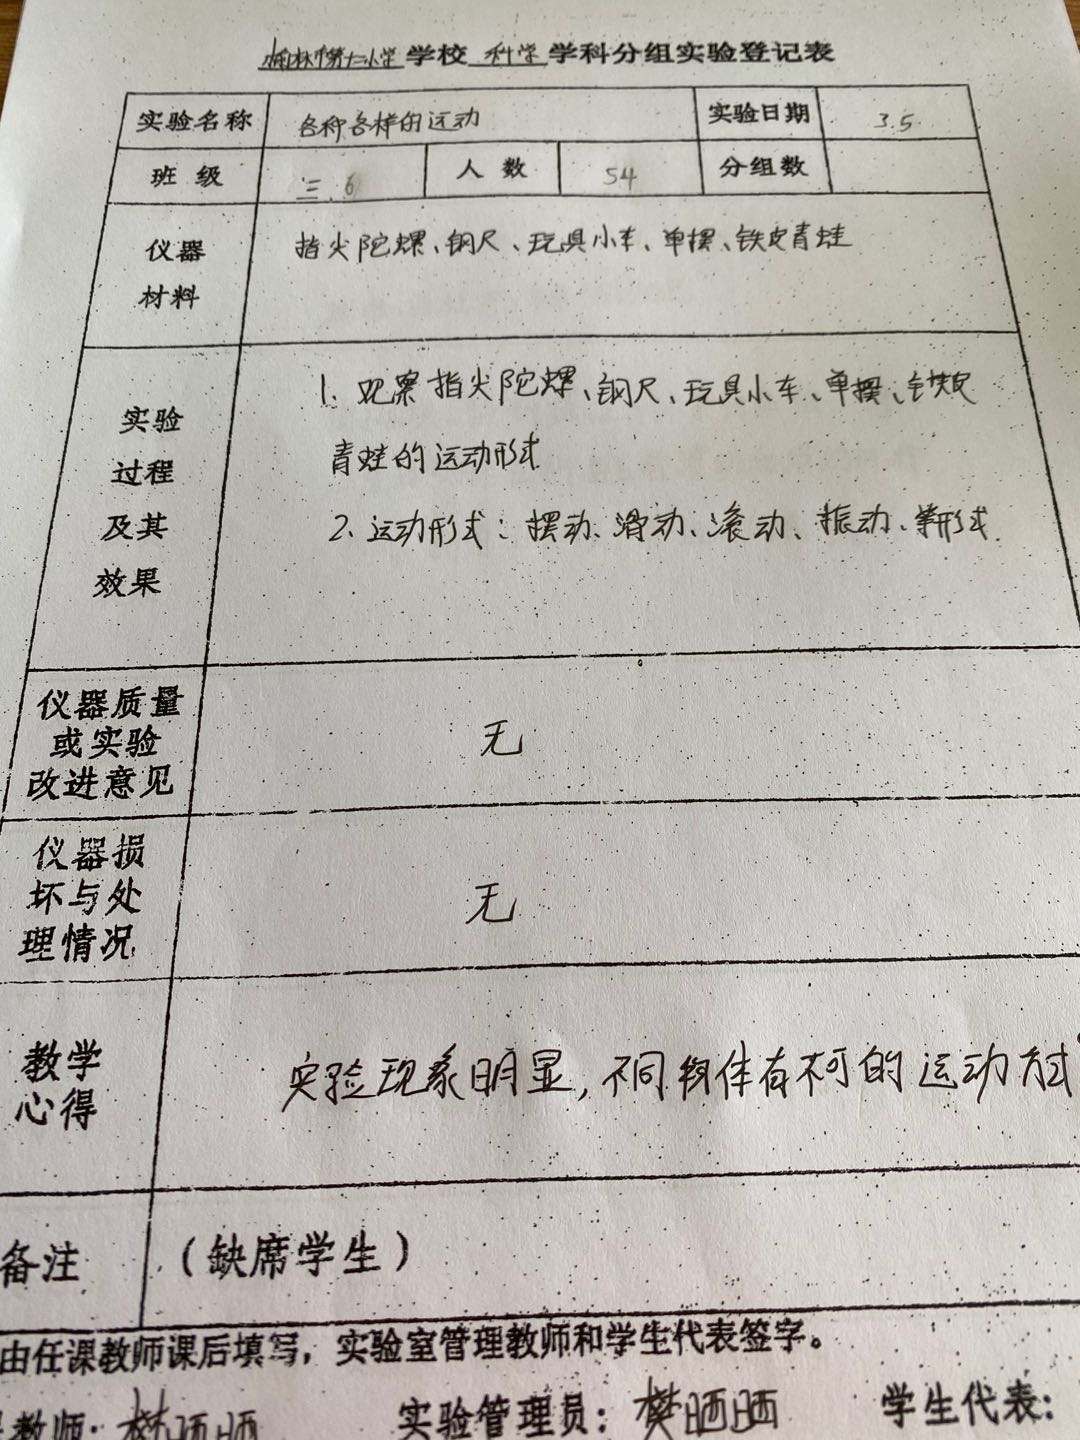 榆林市第十二小学学校 科学 学科分组实验登记表
实验名称 各种各样的运动 实验日期 3.5
班级 三.6 人数 54 分组数
仪器材料 指尖陀螺、钢尺、玩具小车、单摆、铁皮青蛙
实验过程及其效果
1. 观察指尖陀螺、钢尺、玩具小车、单摆、铁皮
青蛙的运动形式
2. 运动形式：摆动、滑动、滚动、振动、等形式.
仪器质量或实验改进意见 无
仪器损坏与处理情况 无
教学心得 实验现象明显,不同物体有不同的运动方式
备注 （缺席学生）
由任课教师课后填写，实验室管理教师和学生代表签字。
教师: 樊晒晒 实验管理员: 樊晒晒 学生代表: